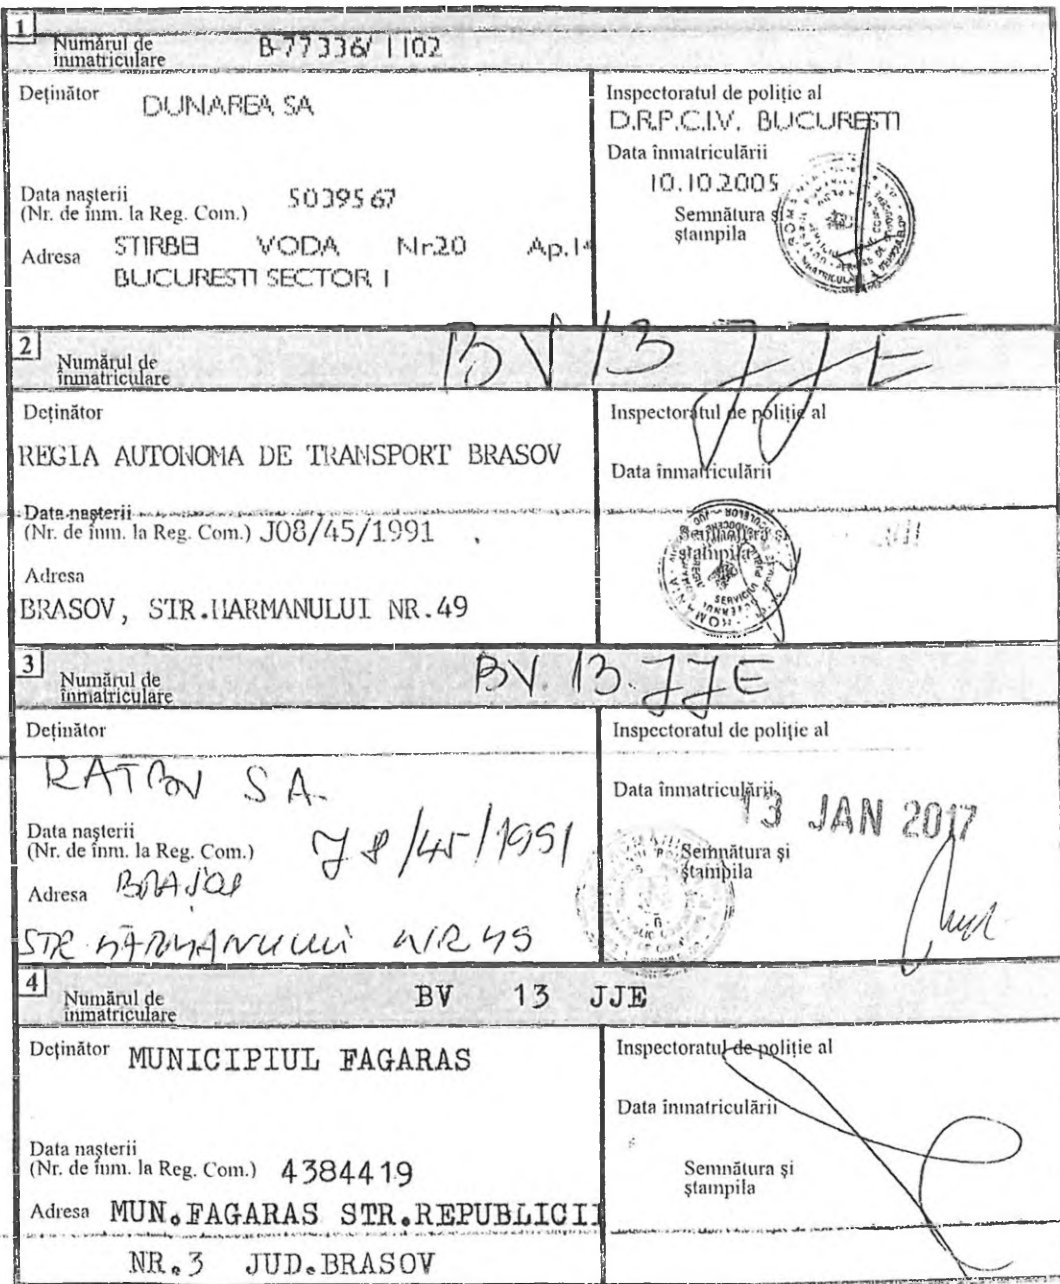 1
Numărul de
înmatriculare
B-77336/1102
Deținător
DUNAREA SA
Data nașterii
(Nr. de înm. la Reg. Com.)
5039567
Adresa STIRBEI VODA Nr.20 Ap.14
BUCURESTI SECTOR 1
Inspectoratul de poliție al
D.R.P.C.I.V. BUCURESTI
Data înmatriculării
10.10.2005
Semnătura și
ștampila
2
Numărul de
înmatriculare
BV 13 JJE
Deținător
REGIA AUTONOMA DE TRANSPORT BRASOV
Data nașterii
(Nr. de înm. la Reg. Com.) J08/45/1991
Adresa
BRASOV, STR.HARMANULUI NR.49
Inspectoratul de poliție al
Data înmatriculării
Semnătura și
ștampila
3
Numărul de
înmatriculare
BV. 13. JJE
Deținător
RATBV SA
Data nașterii
(Nr. de înm. la Reg. Com.) J8/45/1991
Adresa BRAȘOV
STR HĂRMANULUI NR 49
Inspectoratul de poliție al
Data înmatriculării
13 JAN 2017
Semnătura și
ștampila
4
Numărul de
înmatriculare
BV 13 JJE
Deținător MUNICIPIUL FAGARAS
Data nașterii
(Nr. de înm. la Reg. Com.) 4384419
Adresa MUN.FAGARAS STR.REPUBLICII
NR.3 JUD.BRASOV
Inspectoratul de poliție al
Data înmatriculării
Semnătura și
ștampila